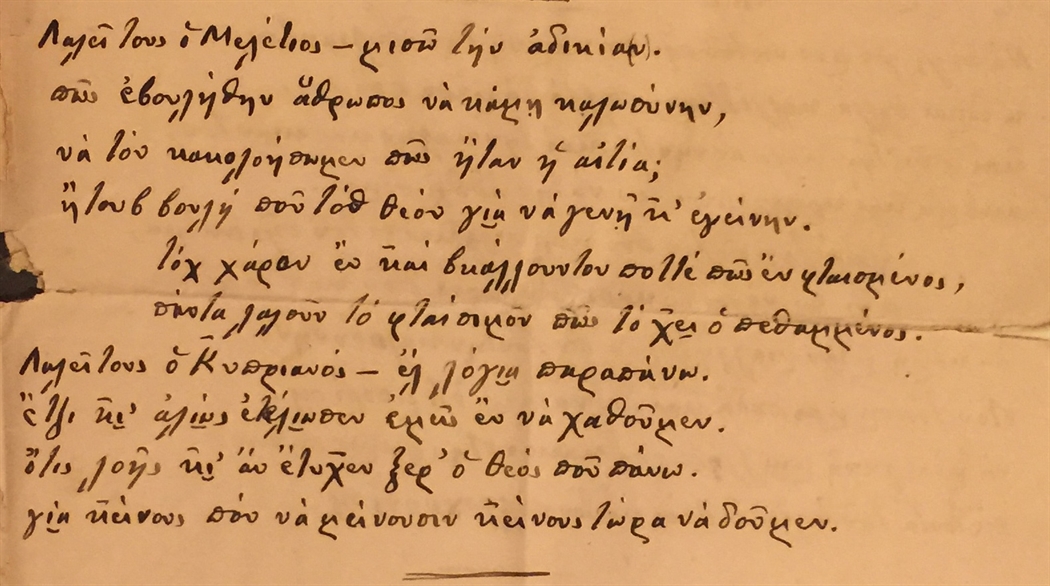 Λαλεῖ τους ὁ Μελέτιος – μισῶ τὴν ἀδικία(ν).
πῶς ἐβουλήθην ἄθρωπος νὰ κάμῃ καλωσύνην,
νὰ τὸν κακολοήσωμεν πῶς ἦταν ἡ αἰτία;
ἦτουβ βουλὴ ποῦ τὸθ θεόν γι̮ὰ νὰ γενῇ κ̌ι' ἐγείνην.
τὸχ χάρον ἒν κ̌αὶ βκάλλουντον ποττὲ πῶς ἒν φταισμένος,
πάντα λαλοῦν τὸ φταίσιμον πῶς τὸ χ̌ει ὁ πεθαμμένος.
Λαλεῖ τους ὁ Κ̌υπριανός – ἒλ λόγι̮α παραπάνω.
ἔτζι κ̌ι̮' ἀλι̮ῶς ἐκλίωσεν ἐμεῖς ἒν νὰ χαθοῦμεν.
ὅτις λοῆς κ̌ι̮' ἂν ἔτυχ̌εν ξέρ' ὁ θεὸς ποῦ πάνω.
γι̮ὰ κ̌είνους ποὺ νὰ μείνουσιν κ̌είνους τώρα νὰ δοῦμεν.